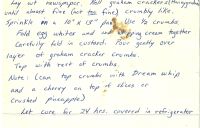 Lay out newspaper Roll graham crackers (
until almost fine (not too fine) crumbly like.
Sprinkle in a 10" x 13" pan Use ½ crumbs
Fold egg whites and whipping cream together
Carefully fold in custard. Pour gently over
layer of graham cracker crumbs.
Top with rest of crumbs.
Note: Can top crumbs with Dream Whip
and a cherry on top of slices or
crushed pineapple)
Let cure for 24 hrs. covered in refrigerator